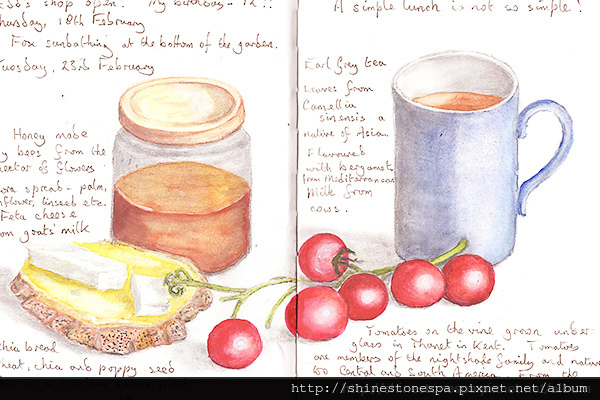 shop open. My birthday -
Thursday, 18th February
Fox sunbathing at the bottom of the garden.
Tuesday, 23rd February
Honey made
by bees from the
nectar of flowers
spread - palm,
sunflower, linseed etc.
Feta cheese
from goats' milk
Chia bread
wheat, chia and poppy seed
A simple lunch is not so simple!
Earl Grey tea
Leaves from
Camellia
sinensis a
native of Asia.
Flavoured
with bergamot
from Mediterranean
Milk from
cows.
Tomatoes on the vine grown under
glass in Thanet in Kent. Tomatoes
are members of the nightshade family and native
to Central and South America. From the
http://shinestonespa.pixnet.net/album